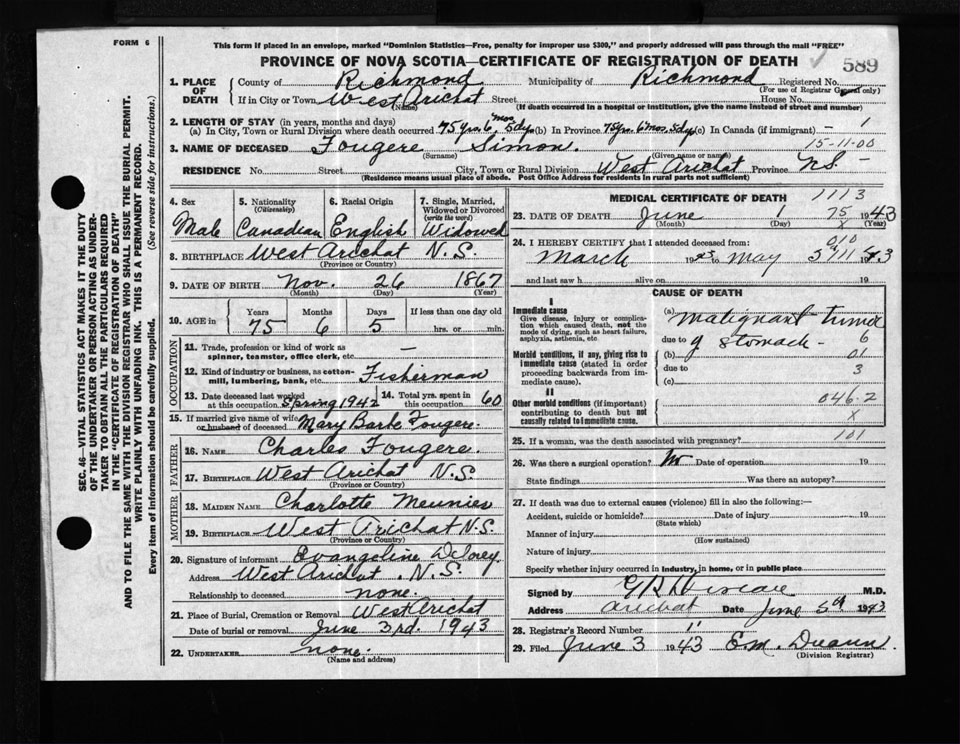 FORM 6
This form if placed in an envelope, marked "Dominion Statistics—Free, penalty for improper use $300," and properly addressed will pass through the mail "FREE"
PROVINCE OF NOVA SCOTIA—CERTIFICATE OF REGISTRATION OF DEATH
589
1. PLACE OF DEATH
County of Richmond Municipality of Richmond Registered No.
(For use of Registrar General only)
If in City or Town West Arichat Street House No.
(Name) (If death occurred in a hospital or institution, give the name instead of street and number)
2. LENGTH OF STAY (in years, months and days)
(a) In City, Town or Rural Division where death occurred 75 yrs. 6 mos. 5 dys (b) In Province 75 yrs. 6 mos. 5 dys (c) In Canada (if immigrant) – 1
15-11-00
3. NAME OF DECEASED Fougere Simon.
(Surname) (Given name or names)
RESIDENCE No. Street City, Town or Rural Division West Arichat Province N.S. –
(Residence means usual place of abode. Post Office Address for residents in rural parts not sufficient)
4. Sex Male
5. Nationality (Citizenship) Canadian
6. Racial Origin English
7. Single, Married, Widowed or Divorced (write the word) Widowed
8. BIRTHPLACE West Arichat N.S.
(Province or Country)
9. DATE OF BIRTH Nov. 26 1867
(Month) (Day) (Year)
10. AGE in Years 75 Months 6 Days 5 If less than one day old hrs. or min.
OCCUPATION
11. Trade, profession or kind of work as spinner, teamster, office clerk, etc. —
12. Kind of industry or business, as cotton-mill, lumbering, bank, etc. Fisherman
13. Date deceased last worked at this occupation Spring 1942
14. Total yrs. spent in this occupation 60
15. If married give name of wife or husband of deceased Mary Barbe Fougere.
FATHER
16. NAME Charles Fougere.
17. BIRTHPLACE West Arichat N.S.
(Province or Country)
MOTHER
18. MAIDEN NAME Charlotte Meunier
19. BIRTHPLACE West Arichat N.S.
(Province or Country)
20. Signature of informant Evangeline Delorey.
Address West Arichat. N.S.
Relationship to deceased none.
21. Place of Burial, Cremation or Removal West Arichat
Date of burial or removal June 3rd. 1943
22. UNDERTAKER none.
(Name and address)
MEDICAL CERTIFICATE OF DEATH
1113
23. DATE OF DEATH June 1 1943
75
(Month) (Day) (Year)
24. I HEREBY CERTIFY that I attended deceased from:
March 19 to May 1943
and last saw h alive on 19
CAUSE OF DEATH
I
Immediate cause
Give disease, injury or complication which caused death, not the mode of dying, such as heart failure, asphyxia, asthenia, etc.
(a) Malignant tumor
due to of Stomach – 6
Morbid conditions, if any, giving rise to immediate cause (stated in order proceeding backwards from immediate cause).
(b) 01
due to 3
(c)
II
Other morbid conditions (if important) contributing to death but not causally related to immediate cause.
046-2
25. If a woman, was the death associated with pregnancy? 101
26. Was there a surgical operation? No Date of operation 19
State findings Was there an autopsy?
27. If death was due to external causes (violence) fill in also the following:—
Accident, suicide or homicide? Date of injury 19
(State which)
Manner of injury
(How sustained)
Nature of injury
Specify whether injury occurred in industry, in home, or in public place
Signed by M.D.
Address Arichat Date June 5th 1943
28. Registrar's Record Number 11
29. Filed June 3 1943 E.M.
(Division Registrar)
SEC. 46—VITAL STATISTICS ACT MAKES IT THE DUTY
OF THE UNDERTAKER OR PERSON ACTING AS UNDER-
TAKER TO OBTAIN ALL THE PARTICULARS REQUIRED
IN THE "CERTIFICATE OF REGISTRATION OF DEATH"
AND TO FILE THE SAME WITH THE DIVISION REGISTRAR WHO SHALL ISSUE THE BURIAL PERMIT.
WRITE PLAINLY WITH UNFADING INK. THIS IS A PERMANENT RECORD.
Every item of information should be carefully supplied. (See reverse side for instructions.)